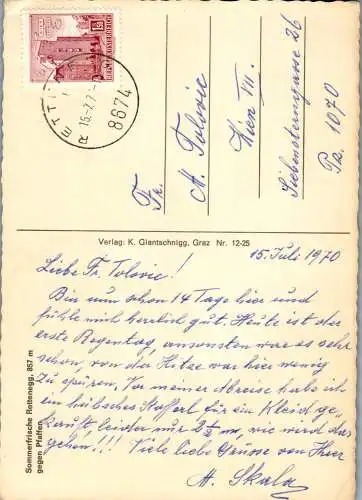 REPUBLIK ÖSTERREICH
RETT
16.-7.7
8674
Fr.
A. Tolovic
Wien VII.
Siebensterngasse 26
Pz. 1070
Verlag: K. Giantschnigg, Graz Nr. 12-25
Sommerfrische Rettenegg, 857 m
gegen Pfaffen
15. Juli 1970
Liebe Fr. Tolovic!
Bin nun schon 14 Tage hier und
fühle mich herrlich gut. Heute ist der
erste Regentag, ansonsten war es sehr
schön, von der Hitze war hier wenig
zu spüren. Vor meiner Abreise habe ich
ein hübsches Stofferl für ein Kleid ge-
kauft, leider nur 2½ m, wie wird das
gehen!!! Viele liebe Grüsse von Ihrer
A. Skala